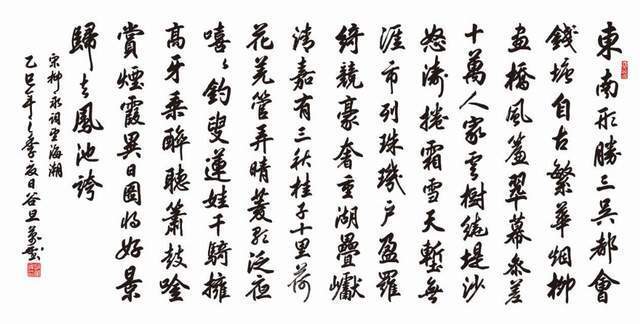 東南形勝三吳都會
錢塘自古繁華烟柳
畫橋風簾翠幕參差
十萬人家雲樹繞堤沙
怒濤捲霜雪天塹無
涯市列珠璣户盈羅
綺競豪奢重湖疊巘
清嘉有三秋桂子十里荷
花羌管弄晴菱歌泛夜
嘻々釣叟蓮娃千騎擁
高牙乘醉聽簫鼓吟
賞煙霞異日圖將好景
歸去鳳池誇
宋柳永詞望海潮
乙巳年之季夏日谷旦